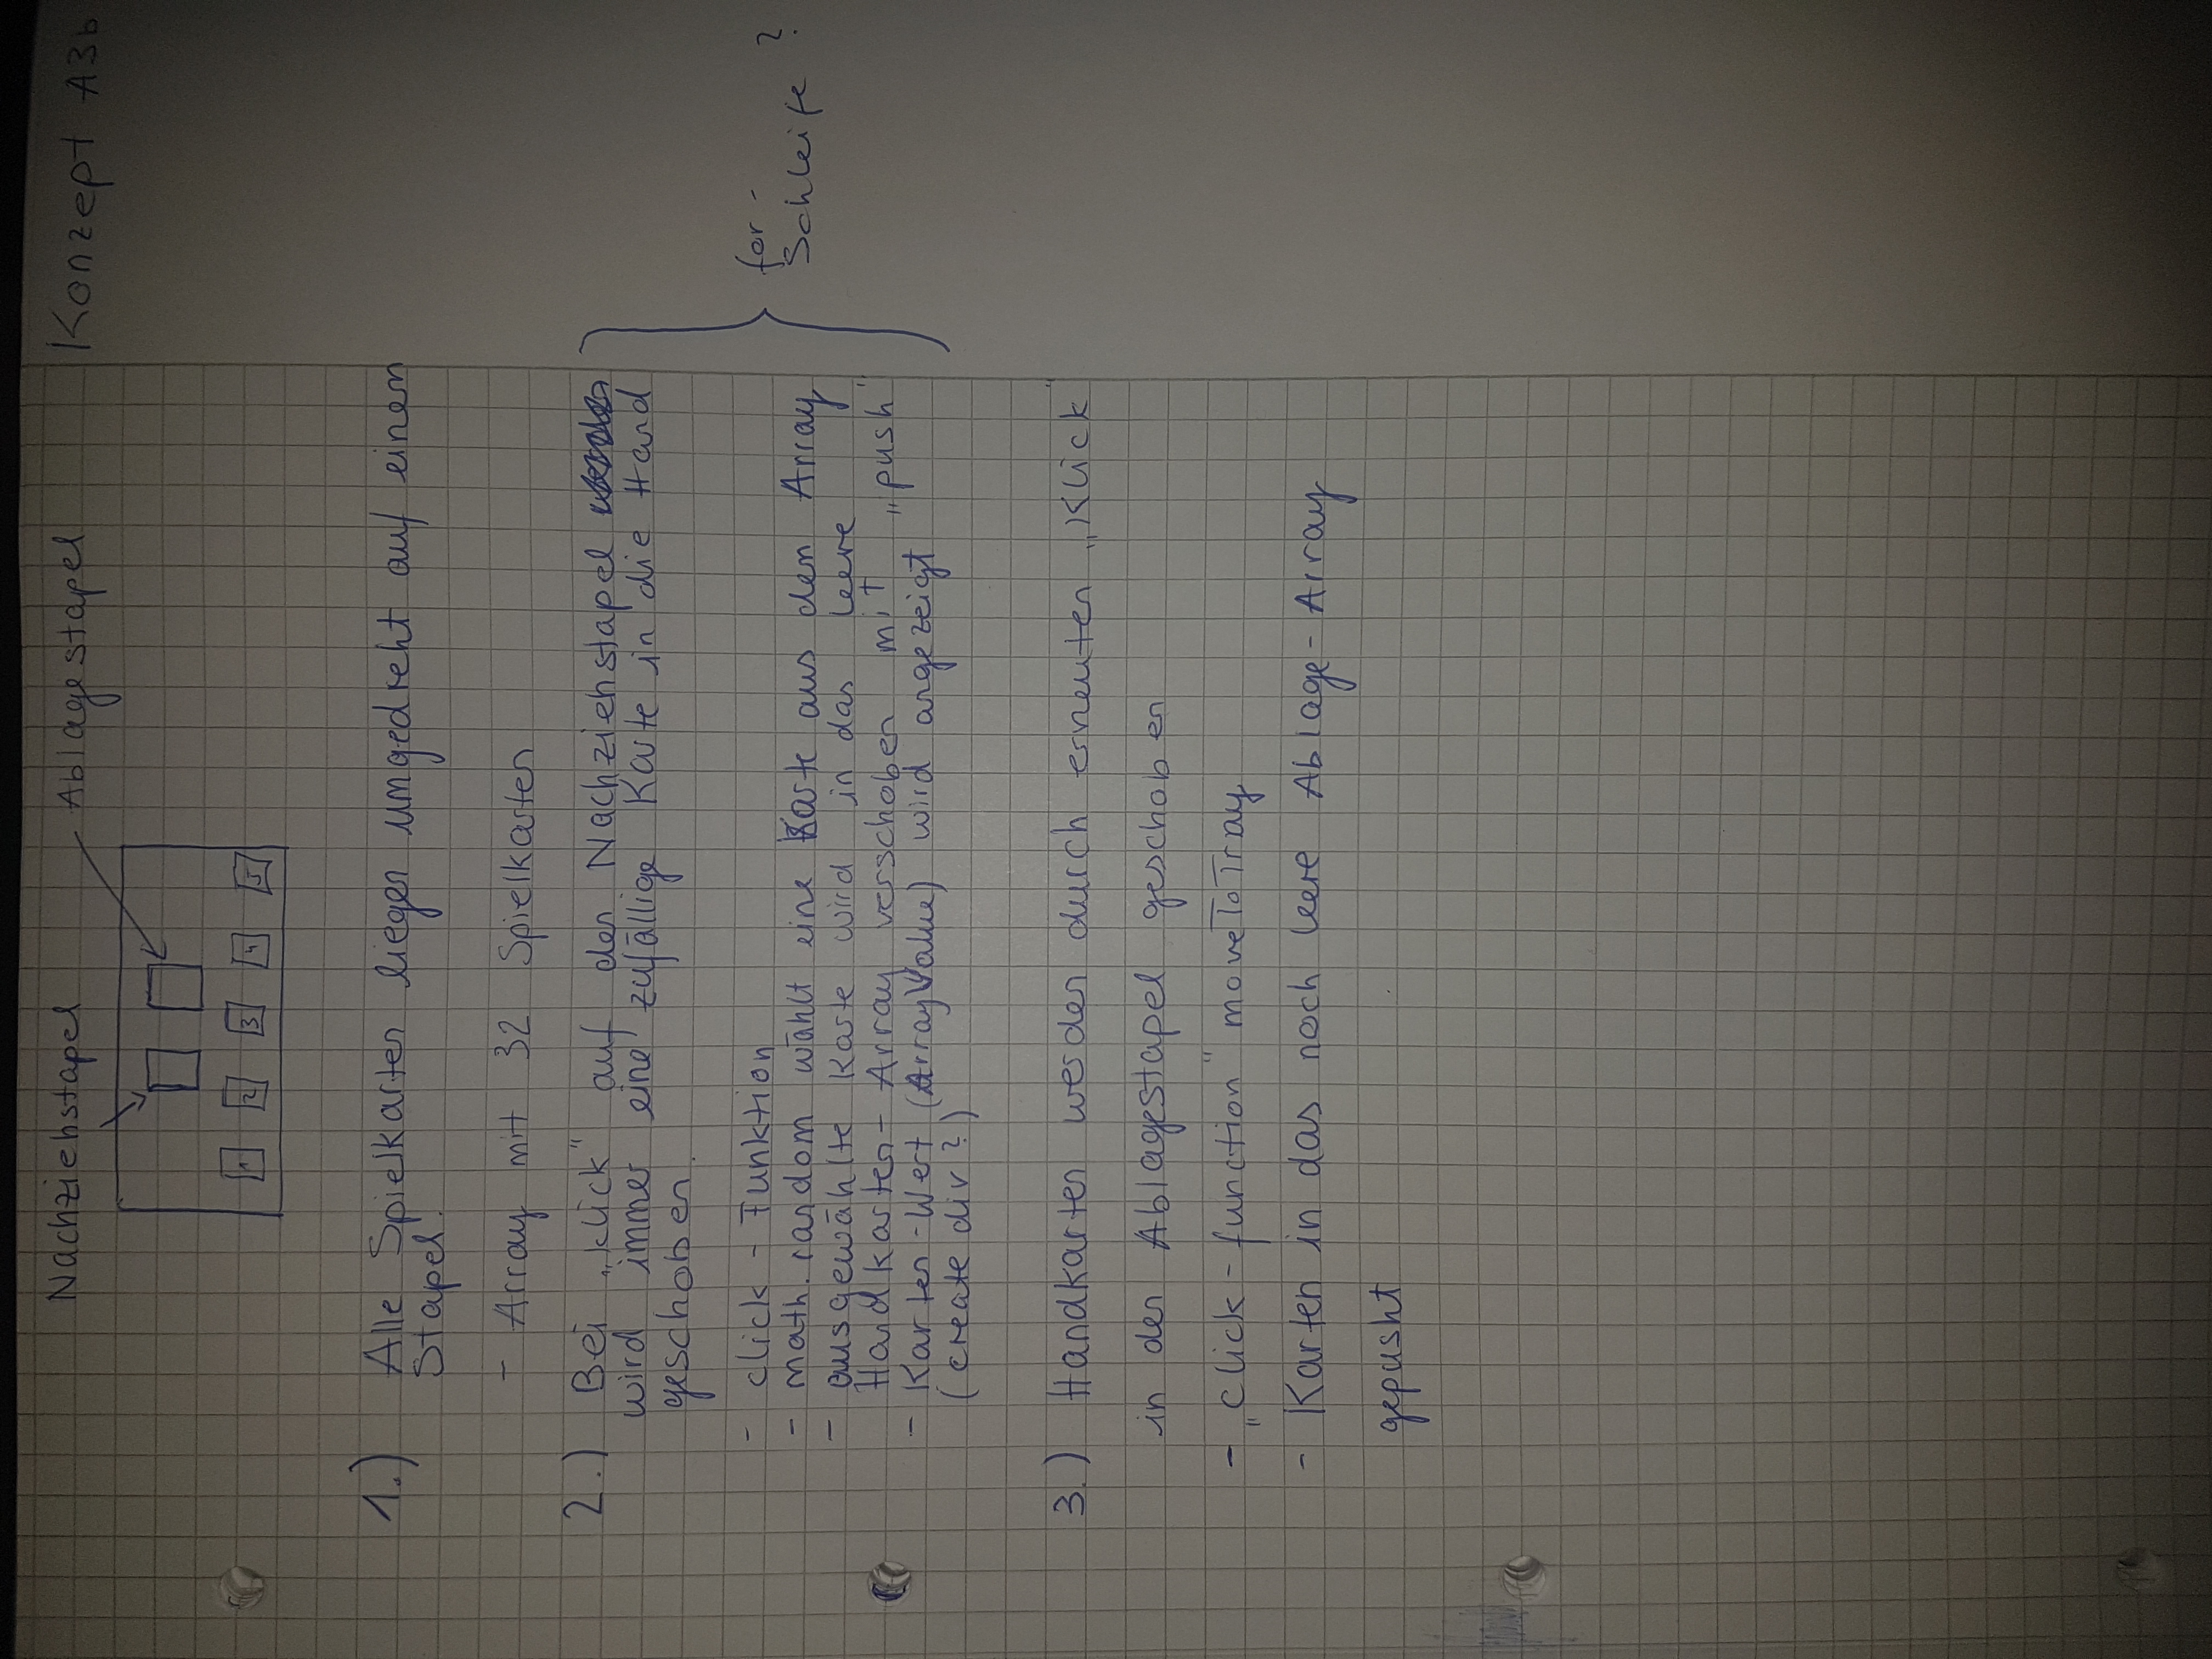 Nachziehstapel
Ablagestapel
Konzept A3b
1 2 3 4 5
1.) Alle Spielkarten liegen umgedreht auf einem
Stapel.
- Array mit 32 Spielkarten
2.) Bei „klick“ auf den Nachziehstapel
wird immer eine zufällige Karte in die Hand
geschoben.
- click - Funktion
- math.random wählt eine Karte aus dem Array
- ausgewählte Karte wird in das leere
Handkarten-Array verschoben mit „push“
- Karten-Wert (ArrayValue) wird angezeigt
(create div?)
for-
Schleife ?
3.) Handkarten werden durch erneuten „Klick“
in den Ablagestapel geschoben
- „click-function“ moveToTray
- Karten in das noch leere Ablage-Array
gepusht